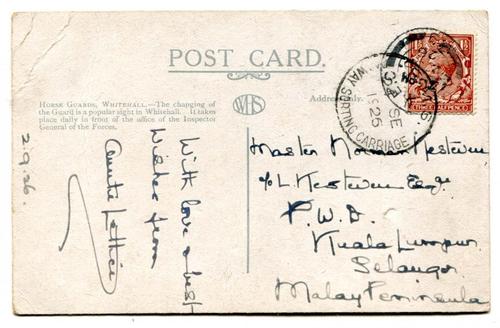 POST CARD.
HORSE GUARDS, WHITEHALL.—The changing of
the Guard is a popular sight in Whitehall. It takes
place daily in front of the office of the Inspector
General of the Forces.
Address only.
THREE HALFPENCE
WAY SORTING CARRIAGE
SE
1926
2.9.26.
With love & best
wishes from
Auntie Lettice
Master Norman Kesteven
c/o L. Kesteven Esqre
P.W.D.
Kuala Lumpur
Selangor
Malay Peninsula